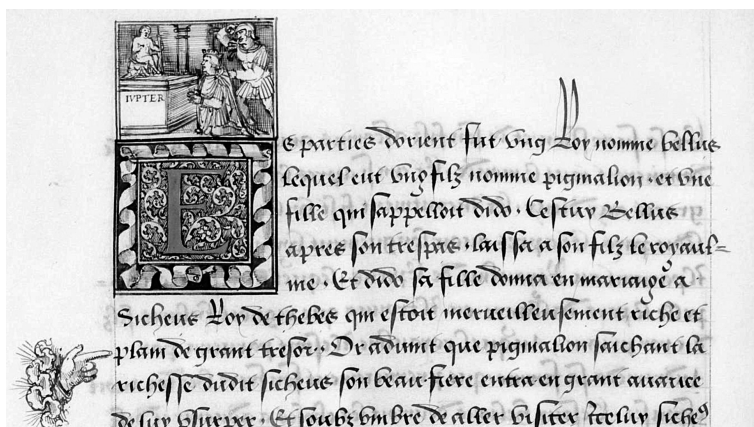 IVPTER
Es parties dorient fut vng Roy nomme bellus
lequel eut vng filz nomme pigmalion · et vne
fille qui sappelloit dido · Cestuy Bellus
apres son trespas · laissa a son filz le royaul=
me · Et dido sa fille donna en mariaige a
Sicheus Roy de thebes qui estoit merueilleusement riche et
plain de grant tresor · Or aduint que pigmalion saichant la
richesse dudit sicheus son beau frere entra en grant auarice
de luy vsurper · Et soubz vmbre de aller visiter Jceluy siche⁹